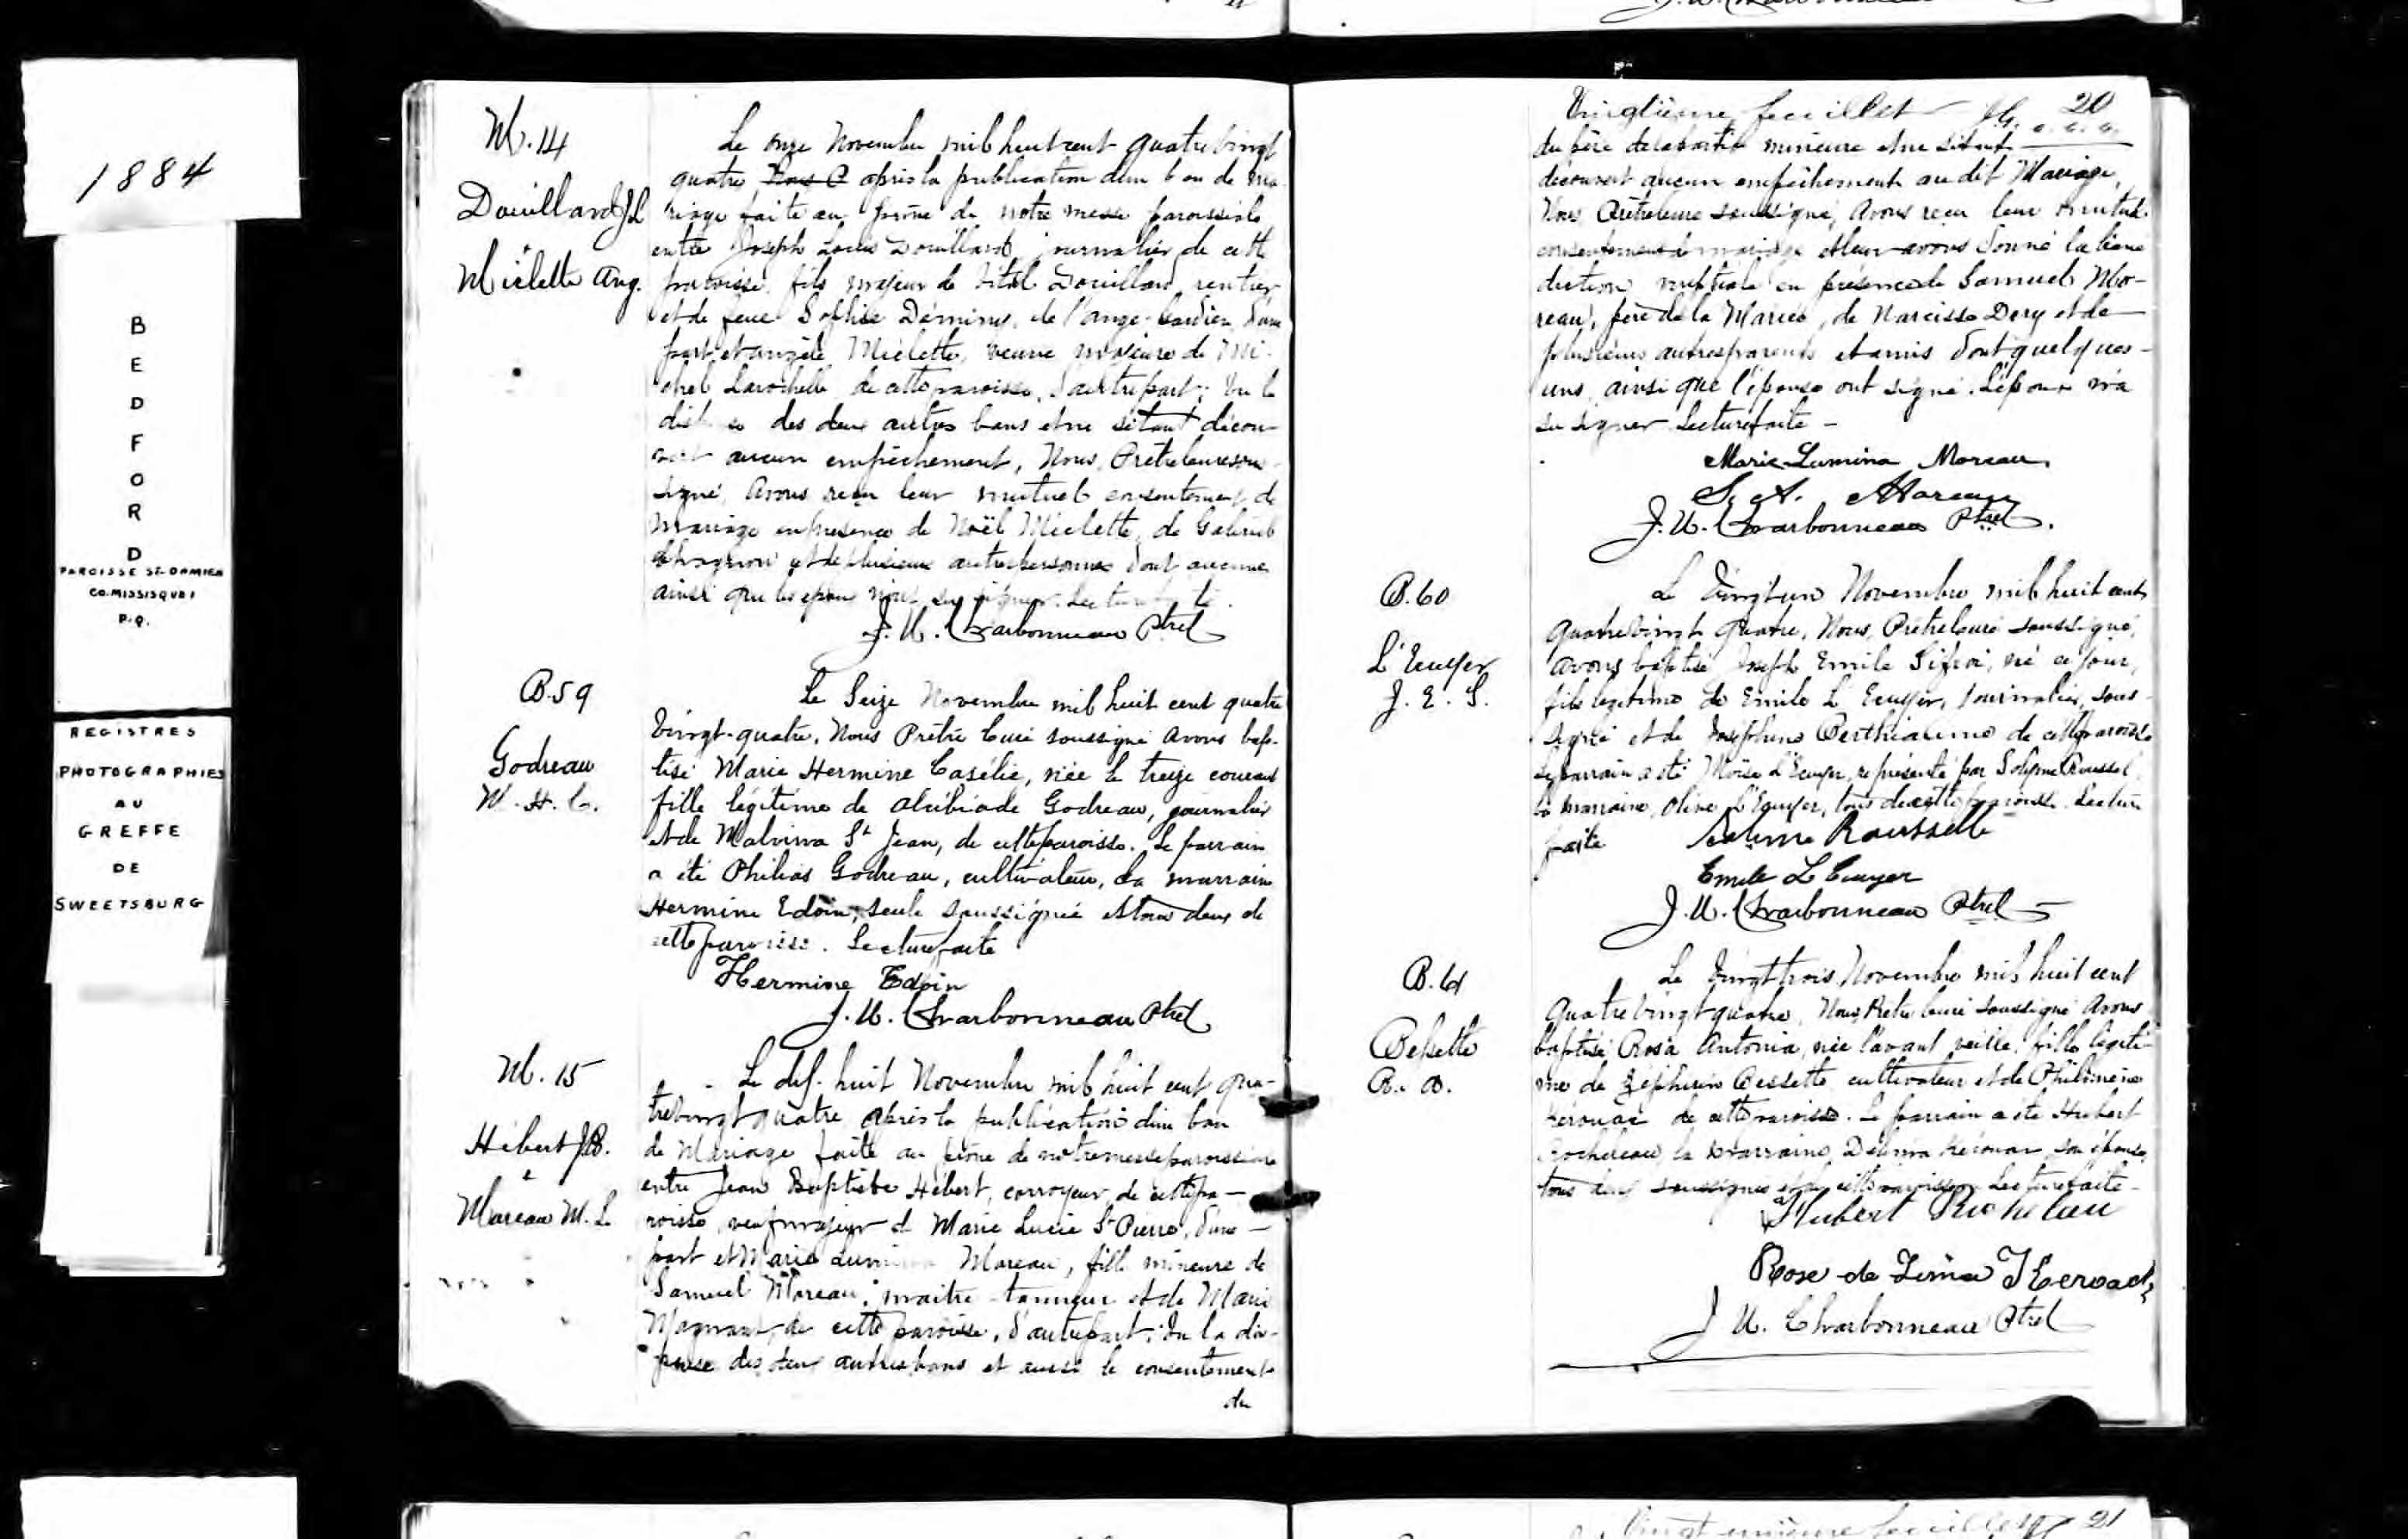 1884
BEDFORD
PAROISSE ST-DAMIEN
CO. MISSISQUOI
P.Q.
REGISTRES
PHOTOGRAPHIES
AU
GREFFE
DE
SWEETSBURG
M. 14
Douillard J L
&
Miclette Ang.
Le onze Novembre mil huit cent quatre vingt
quatre après la publication d'un ban de ma
riage faite au prône de notre messe paroissiale
entre Joseph Louis Douillard journalier de cette
paroisse, fils majeur de Vital Douillard, rentier
et de feue Sophie Déminus, de l'ange-Gardien, d'une
part, et angèle Miclette, veuve majeure de Mi-
chel Larochelle de cette paroisse, d'autre part; Vu la
des deux autres bans et ne s'étant décou-
vert aucun empêchement, Nous, Prêtre Curé sous-
signé, Avons reçu leur mutuel consentement de
Mariage en présence de Noël Miclette, de Gabriel
Chagnon et de plusieurs autres personnes dont aucune
ainsi que les époux n'ont su signer. Lecture faite.
J. U. Charbonneau Ptre
B. 59
Godreau
M. H. C.
Le Seize Novembre mil huit cent quatre
vingt-quatre, Nous Prêtre Curé soussigné avons bap-
tisé Marie Hermine Casélie, née le treize courant
fille légitime de Alcibiade Godreau, journalier
et de Malvina St Jean, de cette paroisse. Le parrain
a été Philias Godreau, cultivateur, La marraine
Hermine Edoin, seule soussignée et tous deux de
cette paroisse. Lecture faite
Hermine Edoin
J. U. Charbonneau Ptre
M. 15
Hébert J.B.
&
Moreau M. L
Le dix-huit Novembre mil huit cent qua-
trevingt quatre après la publication d'un ban
de Mariage faite au prône de notre messe paroissiale
entre Jean Baptiste Hébert, corroyeur, de cette pa-
roisse, veuf majeur de Marie Lucie St Pierre, d'une
part et Marie Lumina Moreau, fille mineure de
Samuel Moreau, maitre-tanneur et de Marie
Magnant, de cette paroisse, d'autre part; Vu la dis-
pense des deux autres bans et aussi le consentement
du
Vingtième feuillet 20
du père de la partie mineure et ne s'étant
découvert aucun empêchement au dit Mariage,
Nous, Prêtre Curé soussigné, Avons reçu leur mutuel
consentement de mariage et leur avons donné la béné
diction nuptiale en présence de Samuel Mo-
reau, père de la Mariée, de Narcisse Dery et de
plusieurs autres parents et amis dont quelques-
uns, ainsi que l'épouse ont signé. L'époux n'a
su signer. Lecture faite -
Marie Lumina Moreau
S. A. Moreau
J. U. Charbonneau Ptre
B. 60
L'Ecuyer
J. E. S.
Le Vingt un Novembre mil huit cent
quatre vingt quatre, Nous, Prêtre Curé soussigné,
avons baptisé Joseph Emile Sifroi, né ce jour,
fils légitime de Emile L'Ecuyer, journalier, sous-
signé et de Joséphine Berthiaume de cette paroisse
Le parrain a été Moïse L'Ecuyer, représenté par Solyme Roussel
la marraine, Olive L'Ecuyer, tous de cette paroisse. Lecture
faite
Solime Rousselle
Emile L Ecuyer
J. U. Charbonneau Ptre
B. 61
Bessette
R. A.
Le Vingt trois Novembre mil huit cent
Quatre vingt quatre, Nous, Prêtre Curé soussigné Avons
baptisé Rosa Antonia, née l'avant veille, fille légiti-
me de Zéphirin Bessette cultivateur et de Philomène
Kérouac de cette paroisse. Le parrain a été Hubert
Rocheleau, la marraine, Délima Kérouac, son épouse,
tous deux soussignés et de cette paroisse. Lecture faite -
Hubert Rocheleau
Rose de Lima Keroack
J U. Charbonneau Ptre
Vingt-unième feuillet 21